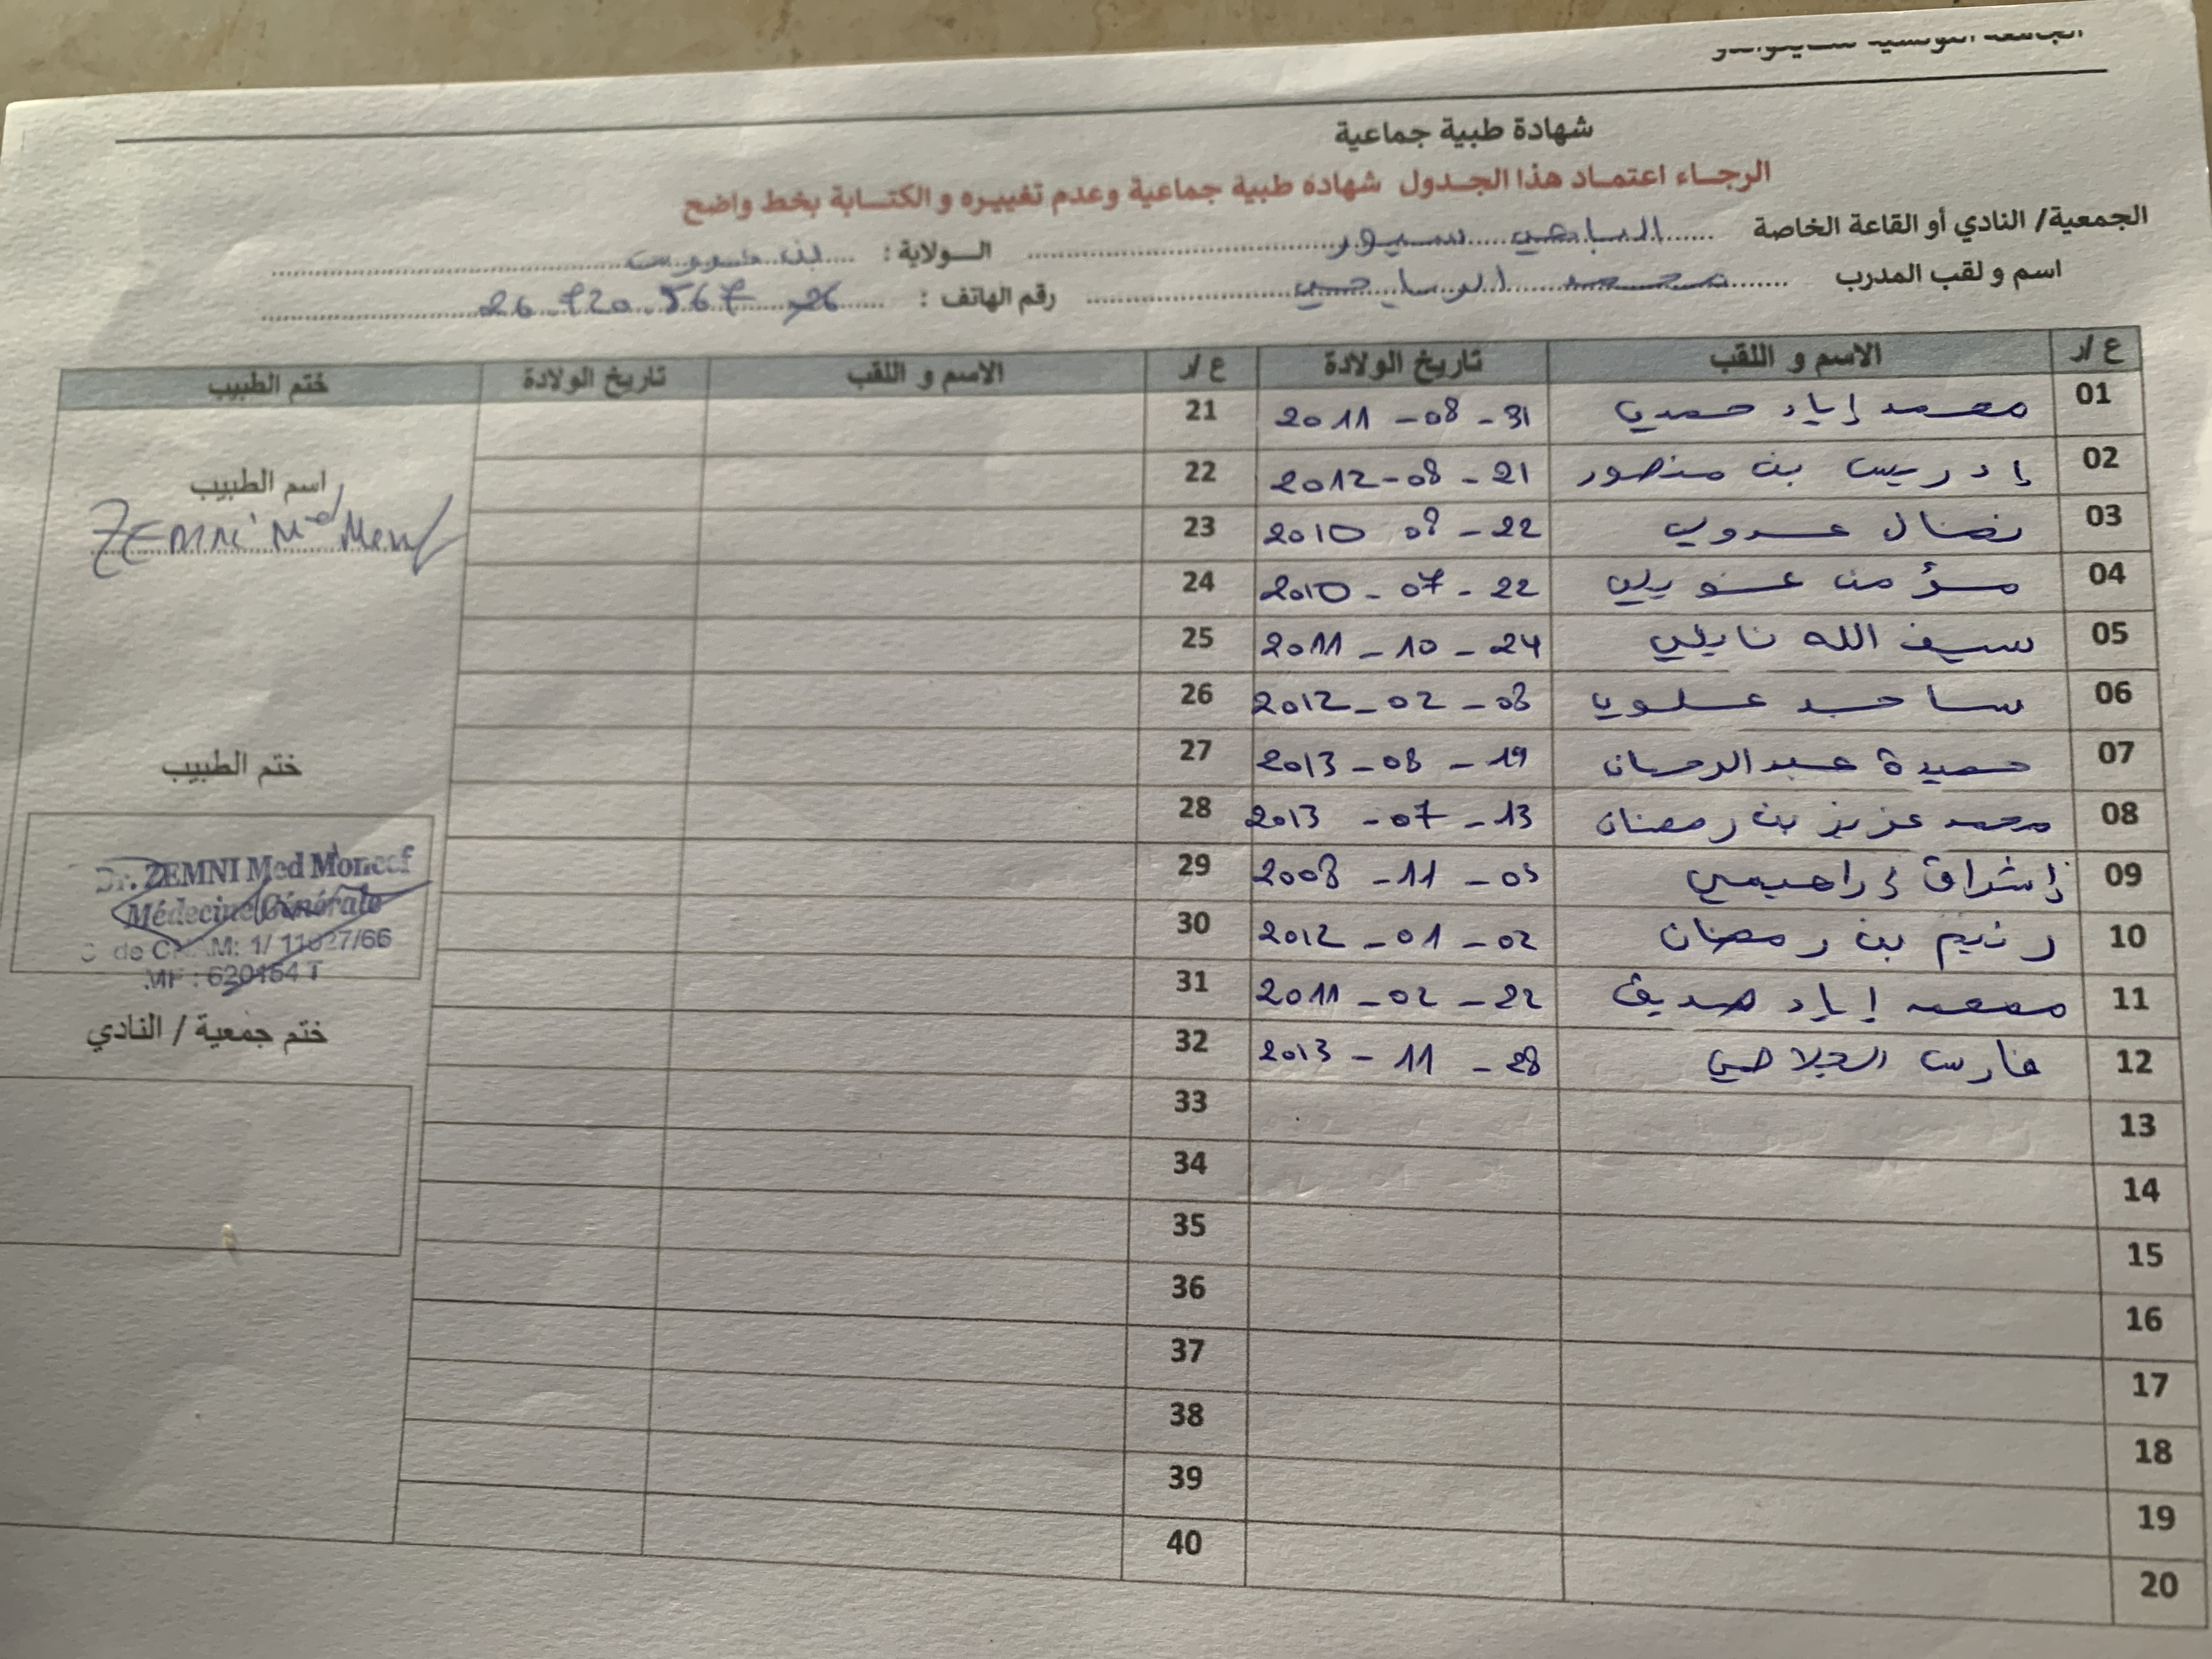 شهادة طبية جماعية
الرجاء اعتماد هذا الجدول شهادة طبية جماعية وعدم تغييره و الكتابة بخط واضح
الجمعية/ النادي أو القاعة الخاصة الباجي سبور الولاية : بن عروس
اسم و لقب المدرب محمد رقم الهاتف : 26.720.567
ع /ر الاسم و اللقب تاريخ الولادة ع /ر الاسم و اللقب تاريخ الولادة ختم الطبيب
01 محمد إياد حمدي 2011 - 08 - 31 21
02 إدريس بن منصور 2012 - 08 - 21 22
03 نضال عدوي 2010 08 - 22 23
04 مؤمن 2010 - 07 - 22 24
05 سيف الله نايلي 2011 - 10 - 24 25
06 ساجد علوي 2012 - 02 - 08 26
07 حميدة عبد الرحمان 2013 - 08 - 19 27
08 محمد عزيز بن رمضان 2013 - 07 - 13 28
09 إشراق إبراهيمي 2008 - 11 - 05 29
10 رنيم بن رمضان 2012 - 01 - 02 30
11 محمد إياد صديق 2011 - 02 - 22 31
12 فارس الجلاصي 2013 - 11 - 28 32
13 33
14 34
15 35
16 36
17 37
18 38
19 39
20 40
اسم الطبيب
ZEMNI Md
ختم الطبيب
Dr. ZEMNI Med Moncef
Médecine Générale
de CNAM: 1/ 11027/66
MF : 620154 T
ختم جمعية / النادي